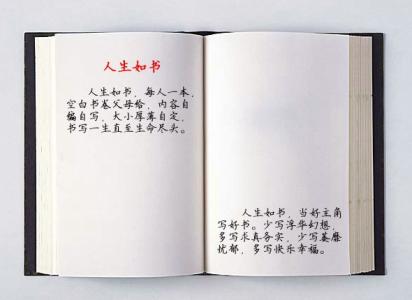 人生如书
人生如书，每人一本，
空白书卷父母给，内容自
编自写，大小厚薄自定，
书写一生直至生命尽头。
人生如书，当好主角
写好书。少写浮华幻想，
多写求真务实，少写萎靡
忧郁，多写快乐幸福。